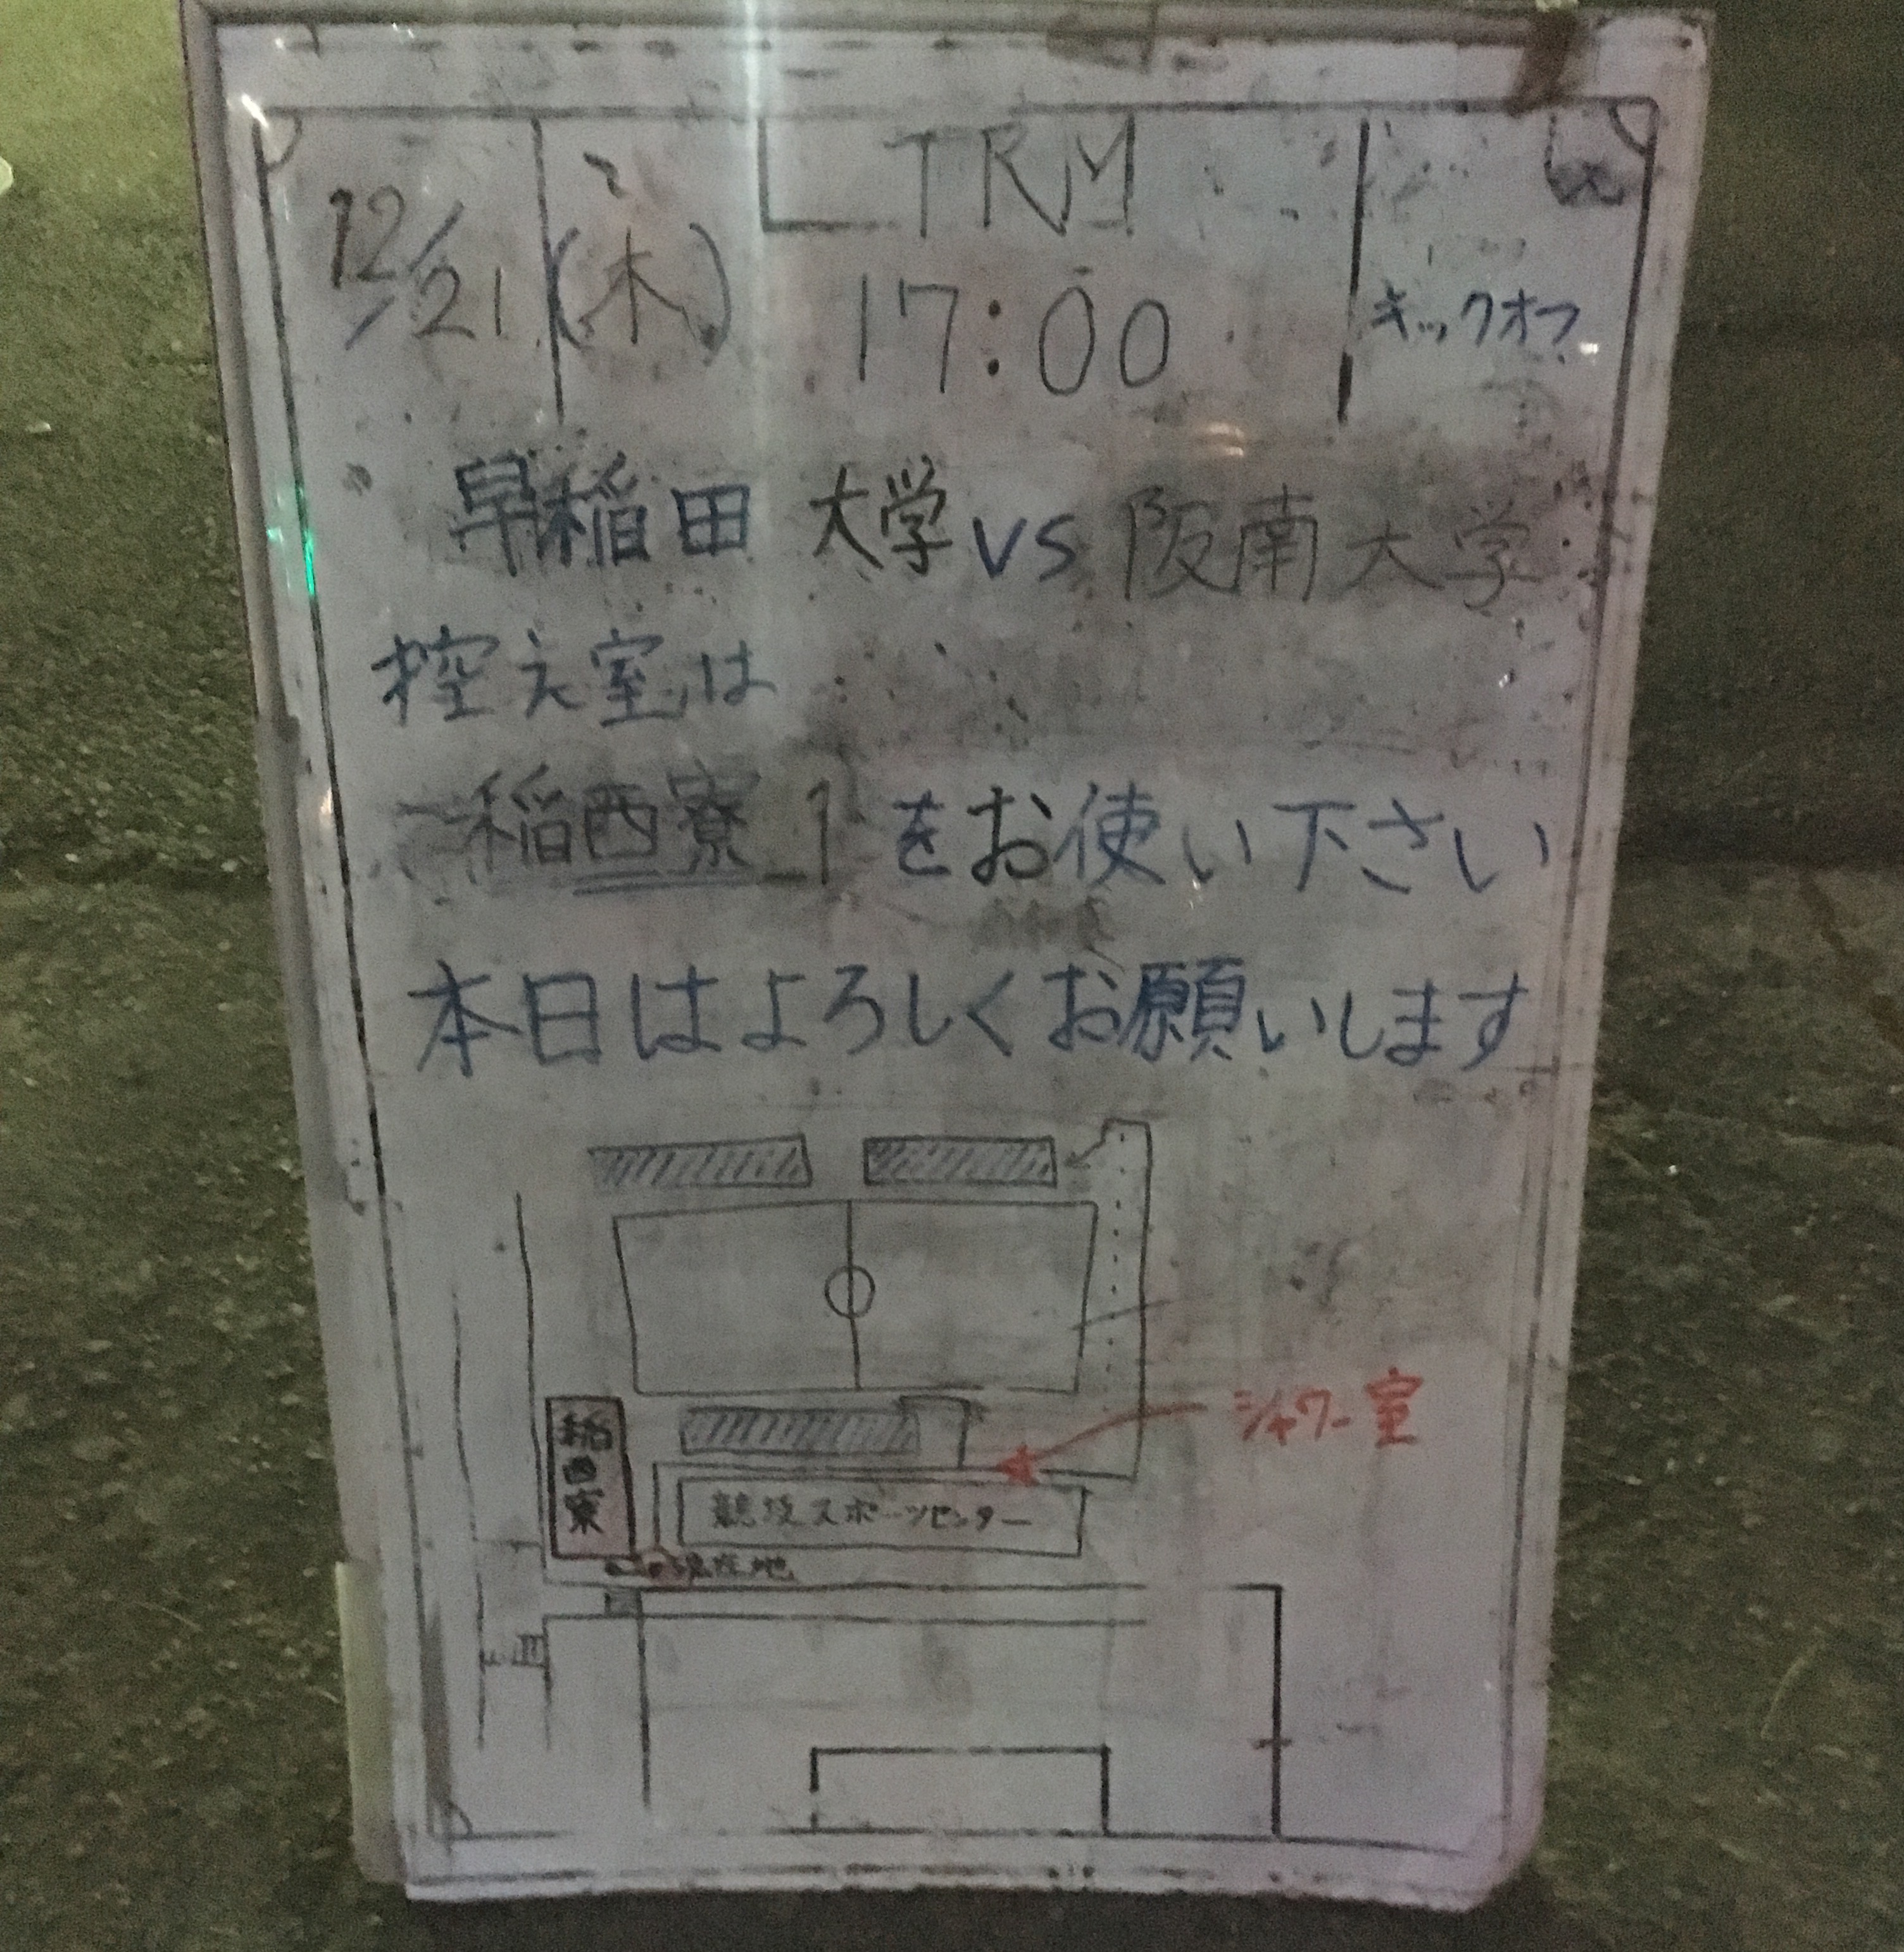 TRM
12/21(木) 17:00 キックオフ
早稲田大学 VS 阪南大学
控え室は
稲西寮 1 をお使い下さい
本日はよろしくお願いします
シャワー室
稲西寮
競技スポーツセンター
現在地